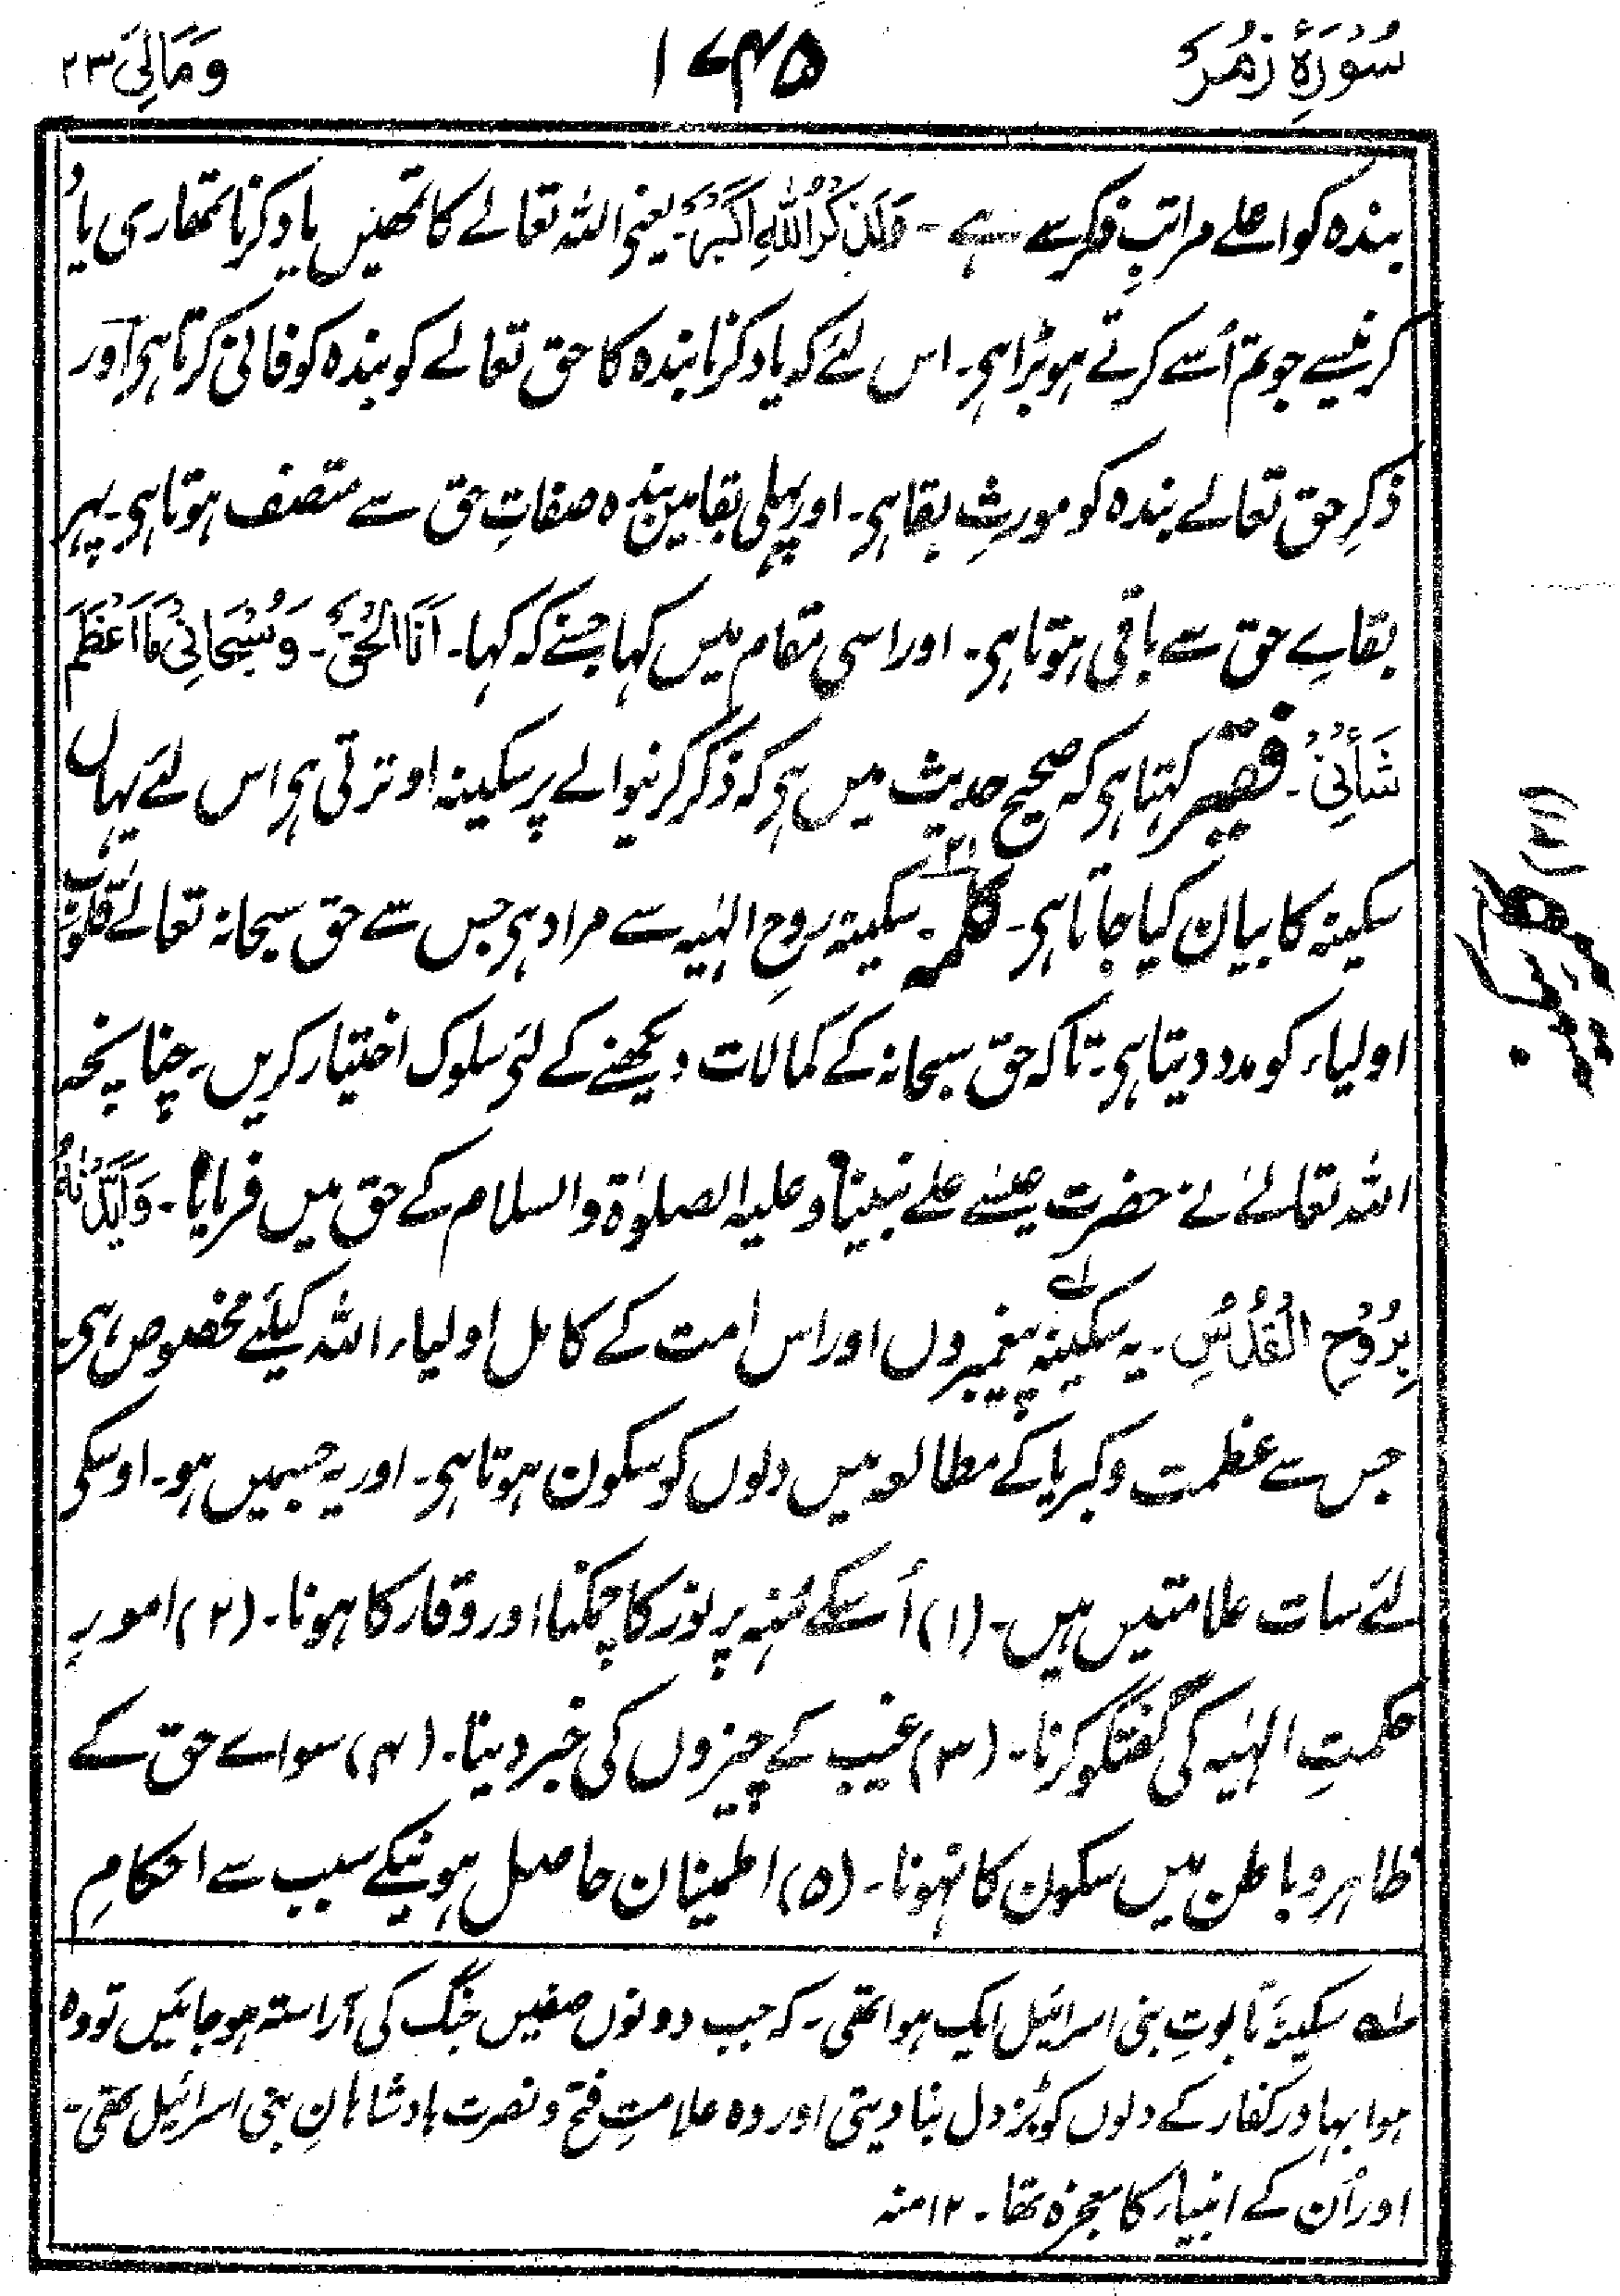 سُوْرَۂ زُمُرْ
۱۷۴۵
وَمَالِیَ ۲۳
بندہ کو اعلے مراتبِ فکر سے ہے ۔ وَلَذِکْرُ اللّٰہِ اَکْبَرُ یعنی اللہ تعالے کا تمھیں یاد کرنا تمھاری یاد
کرنیسے جو تم اُسے کرتے ہو بڑا ہی۔ اس لئے کہ یاد کرنا بندہ کا حق تعالے کو بندہ کو فانی کرتا ہی اور
ذکرِ حق تعالے بندہ کو مورثِ بقا ہی۔ اور پہلی بقا مین بندہ صفاتِ حق سے متصف ہوتا ہی۔ پہر
بقاےِ حق سے باقی ہوتا ہی۔ اور اسی مقام میں کہا جسنے کہ کہا۔ اَنَا الْحَقُّ۔ وَسُبْحَانِیْ مَا اَعْظَمَ
شَأْنِیْ۔ فقیر کہتا ہی کہ صحیح حدیث میں ہی کہ ذکر کرنیوالے پر سکینہ اوترتی ہی اس لئے یہاں
سکینہ کا بیان کیا جاتا ہی۔ کلمہ ۲ ۔ سکینہ روحِ الٰہیہ سے مراد ہی جس سے حق سبحانہ تعالے قلوب
اولیاء کو مدد دیتا ہی۔ تاکہ حق سبحانہ کے کمالات دیکھنے کے لئی سلوک اختیار کریں۔ چنانچہ
اللہ تعالےٰ نے حضرت عیسےٰ علے نبینا و علیہ الصلوٰۃ والسلام کے حق میں فرمایا۔ وَاَیَّدْنٰہُ
بِرُوْحِ الْقُدُسِ۔ یہ سکینہ لہ پیغمبروں اور اس امت کے کامل اولیاء اللہ کیلئے مخصوص ہی
جس سے عظمت و کبریا کے مطالعہ میں دلوں کو سکون ہوتا ہی۔ اور یہ جسمیں ہو۔ اوسکی
لئے سات علامتیں ہیں۔ (۱) اُسکے مُنہ پر نور کا چمکنا اور وقار کا ہونا۔ (۲) امورِ
حکمتِ الٰہیہ کی گفتگو کرنا۔ (۳) غیب کے چیزوں کی خبر دینا۔ (۴) سواے حق کے
ظاہر و باطن میں سکون کا نہونا۔ (۵) اطمینان حاصل ہونیکے سبب سے احکامِ
(۲)
لہ سکینۂ تابوتِ بنی اسرائیل ایک ہوا تھی۔ کہ جب دونوں صفیں جنگ کی آراستہ ہو جائیں تو وہ
ہوا بہادر کفار کے دلوں کو بُزدل بنا دیتی اور وہ علامتِ فتح و نصرت بادشاہانِ بنی اسرائیل تھی۔
اور اُن کے انبیاء کا معجزہ تھا۔ ۱۲ منہ